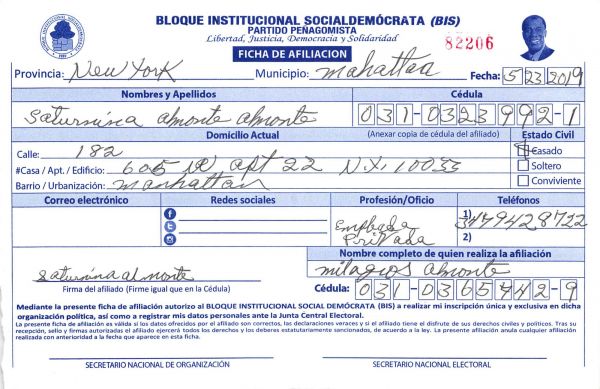 BLOQUE INSTITUCIONAL SOCIALDEMÓCRATA (BIS)
PARTIDO PEÑAGOMISTA
Libertad, Justicia, Democracia y Solidaridad
FICHA DE AFILIACION
82206
Provincia: New York Municipio: Mahattan Fecha: 5 23 2019
Nombres y Apellidos Cédula
Saturnina almonte almonte 031-0323992-1
Domicilio Actual (Anexar copia de cédula del afiliado) Estado Civil
Calle: 182 Casado
#Casa / Apt. / Edificio: 605 W apt 22 N.Y. 10033 Soltero
Barrio / Urbanización: Manhattan Conviviente
Correo electrónico Redes sociales Profesión/Oficio Teléfonos
Empleada Privada 1) 3479428722
2)
Nombre completo de quien realiza la afiliación
saturnina almonte milagros almonte
Firma del afiliado (Firme igual que en la Cédula) Cédula: 031-0365442-9
Mediante la presente ficha de afiliación autorizo al BLOQUE INSTITUCIONAL SOCIAL DEMÓCRATA (BIS) a realizar mi inscripción única y exclusiva en dicha
organización política, así como a registrar mis datos personales ante la Junta Central Electoral.
La presente ficha de afiliación es válida si los datos ofrecidos por el afiliado son correctos, las declaraciones veraces y si el afiliado tiene el disfrute de sus derechos civiles y políticos. Tras su
recepción, sello y firmas autorizadas el afiliado ejercerá todos los derechos y los deberes estatutariamente sancionados, de acuerdo a la ley. La presente afiliación anula cualquier afiliación
realizada con anterioridad a la fecha que aparece en esta ficha.
SECRETARIO NACIONAL DE ORGANIZACIÓN SECRETARIO NACIONAL ELECTORAL